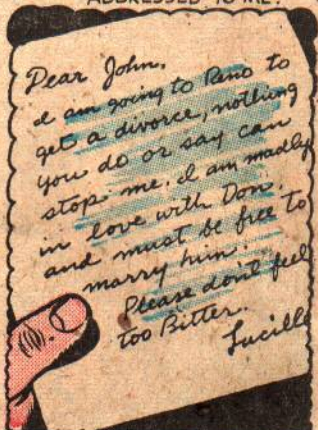 ADDRESSED TO ME!
Dear John,
I am going to Reno to
get a divorce, nothing
you do or say can
stop me. I am madly
in love with Don.
and must be free to
marry him.
Please don't feel
too Bitter.
Lucille